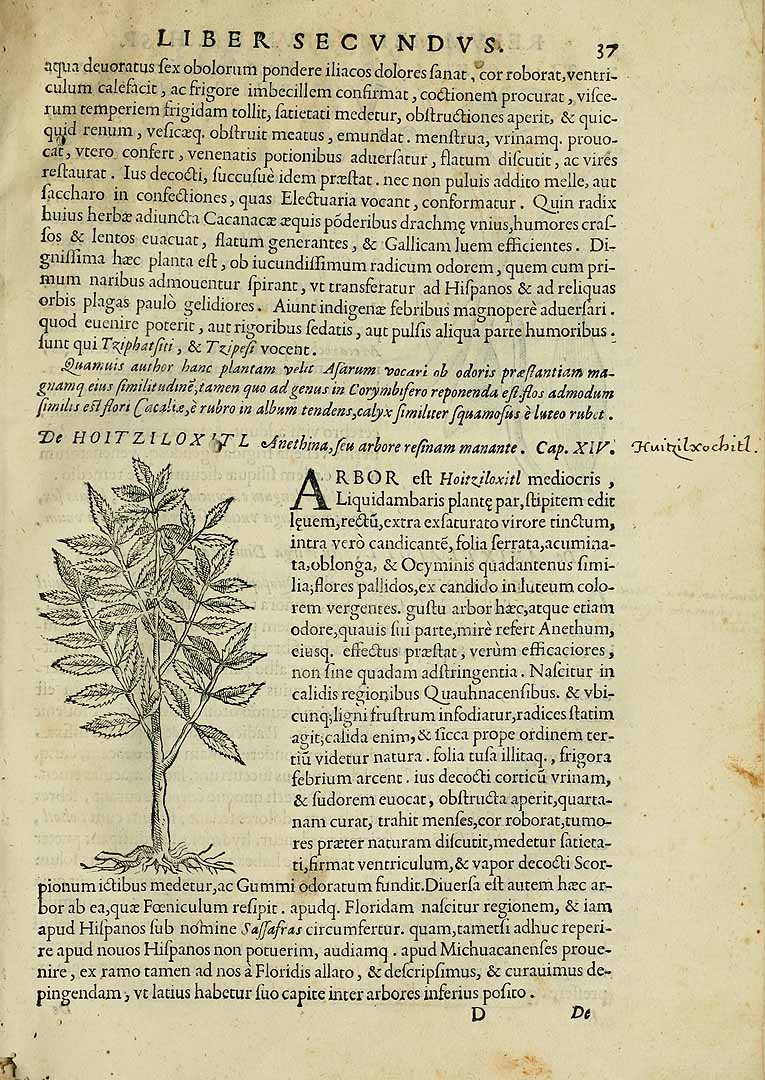 LIBER SECVNDVS. 37
aqua deuoratus sex obolorum pondere iliacos dolores sanat, cor roborat, ventri-
culum calefacit, ac frigore imbecillem confirmat, coctionem procurat, visce-
rum temperiem frigidam tollit, satietati medetur, obstructiones aperit, & quic-
quid renum, vesicæq. obstruit meatus, emundat. menstrua, vrinamq. prouo-
cat, vtero confert, venenatis potionibus aduersatur, flatum discutit, ac vires
restaurat. Ius decocti, succusuè idem præstat. nec non puluis addito melle, aut
saccharo in confectiones, quas Electuaria vocant, conformatur. Quin radix
huius herbæ adiuncta Cacanacæ æquis põderibus drachmę vnius, humores cras-
sos & lentos euacuat, flatum generantes, & Gallicam luem efficientes. Di-
gnissima hæc planta est, ob iucundissimum radicum odorem, quem cum pri-
mum naribus admouentur spirant, vt transferatur ad Hispanos & ad reliquas
orbis plagas paulò gelidiores. Aiunt indigenæ febribus magnoperè aduersari.
quod euenire poterit, aut rigoribus sedatis, aut pulsis aliqua parte humoribus.
sunt qui Tziphatsiti, & Tzipesi vocent.
Quamuis author hanc plantam velit Asarum vocari ob odoris præstantiam ma-
gnamq eius similitudinẽ, tamen quo ad genus in Corymbifero reponenda est. flos admodum
similis est flori Cacaliæ, è rubro in album tendens, calyx similiter squamosus è luteo rubet.
De HOITZILOXITL Anethina, seu arbore resinam manante. Cap. XIV.
Huitzilxochitl.
ARBOR est Hoitziloxitl mediocris,
Liquidambaris plantę par, stipitem edit
lęuem, rectũ, extra exsaturato virore tinctum,
intra verò candicantẽ, folia serrata, acumina-
ta, oblonga, & Ocyminis quadantenus simi-
lia; flores pallidos, ex candido in luteum colo-
rem vergentes. gustu arbor hæc, atque etiam
odore, quauis sui parte, mirè refert Anethum,
eiusq. effectus præstat, verùm efficaciores,
non sine quadam adstringentia. Nascitur in
calidis regionibus Quauhnacensibus. & vbi-
cunq; ligni frustrum infodiatur, radices statim
agit; calida enim, & sicca prope ordinem ter-
tiũ videtur natura. folia tusa illitaq., frigora
febrium arcent. ius decocti corticũ vrinam,
& sudorem euocat, obstructa aperit, quarta-
nam curat, trahit menses, cor roborat, tumo-
res præter naturam discutit, medetur satieta-
ti, firmat ventriculum, & vapor decocti Scor-
pionum ictibus medetur, ac Gummi odoratum fundit. Diuersa est autem hæc ar-
bor ab ea, quæ Fœniculum resipit. apudq. Floridam nascitur regionem, & iam
apud Hispanos sub nomine Sassafras circumfertur. quam, tametsi adhuc reperi-
re apud nouos Hispanos non potuerim, audiamq. apud Michuacanenses proue-
nire, ex ramo tamen ad nos à Floridis allato, & descripsimus, & curauimus de-
pingendam, vt latius habetur suo capite inter arbores inferius posito.
D De